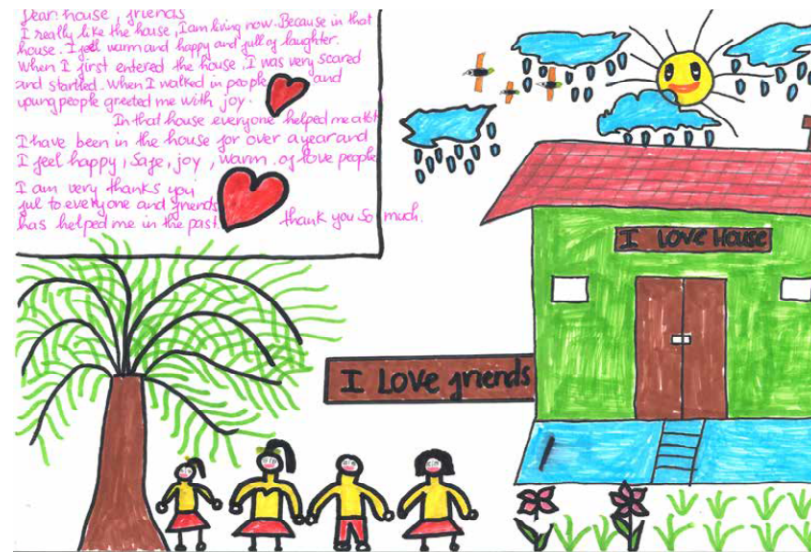 Dear house, friends
I really like the house, I am living now. Because in that
house. I feel warm and happy and full of laughter.
When I first entered the house, I was very scared
and startled. When I walked in people and
young people greeted me with joy.
In that house everyone helped me a lot
I have been in the house for over a year and
I feel happy, Safe, joy, warm, of love people
I am very thanks you
ful to everyone and friends
has helped me in the past. thank you so much.
I LOVE HOUSE
I LOVE friends